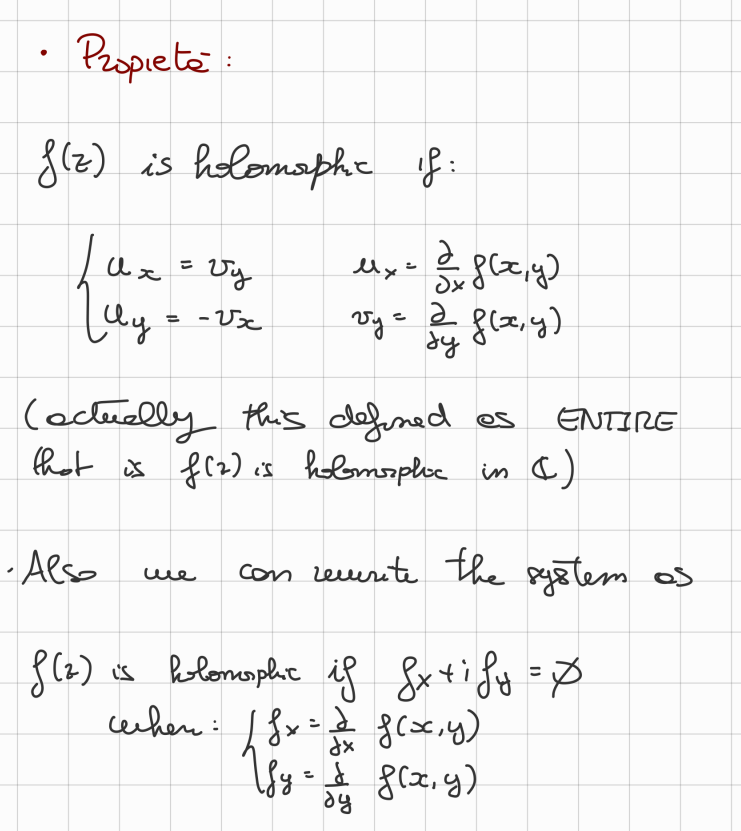 • Propietà:
f(z) is holomorphic if:
{ u_x = v_y    u_x = ∂/∂x f(x,y)
{ u_y = -v_x    v_y = ∂/∂y f(x,y)
(actually this defined as ENTIRE
that is f(z) is holomorphic in ℂ)
• Also we can rewrite the system as
f(z) is holomorphic if f_x + i f_y = ∅
when: { f_x = ∂/∂x f(x,y)
{ f_y = ∂/∂y f(x,y)